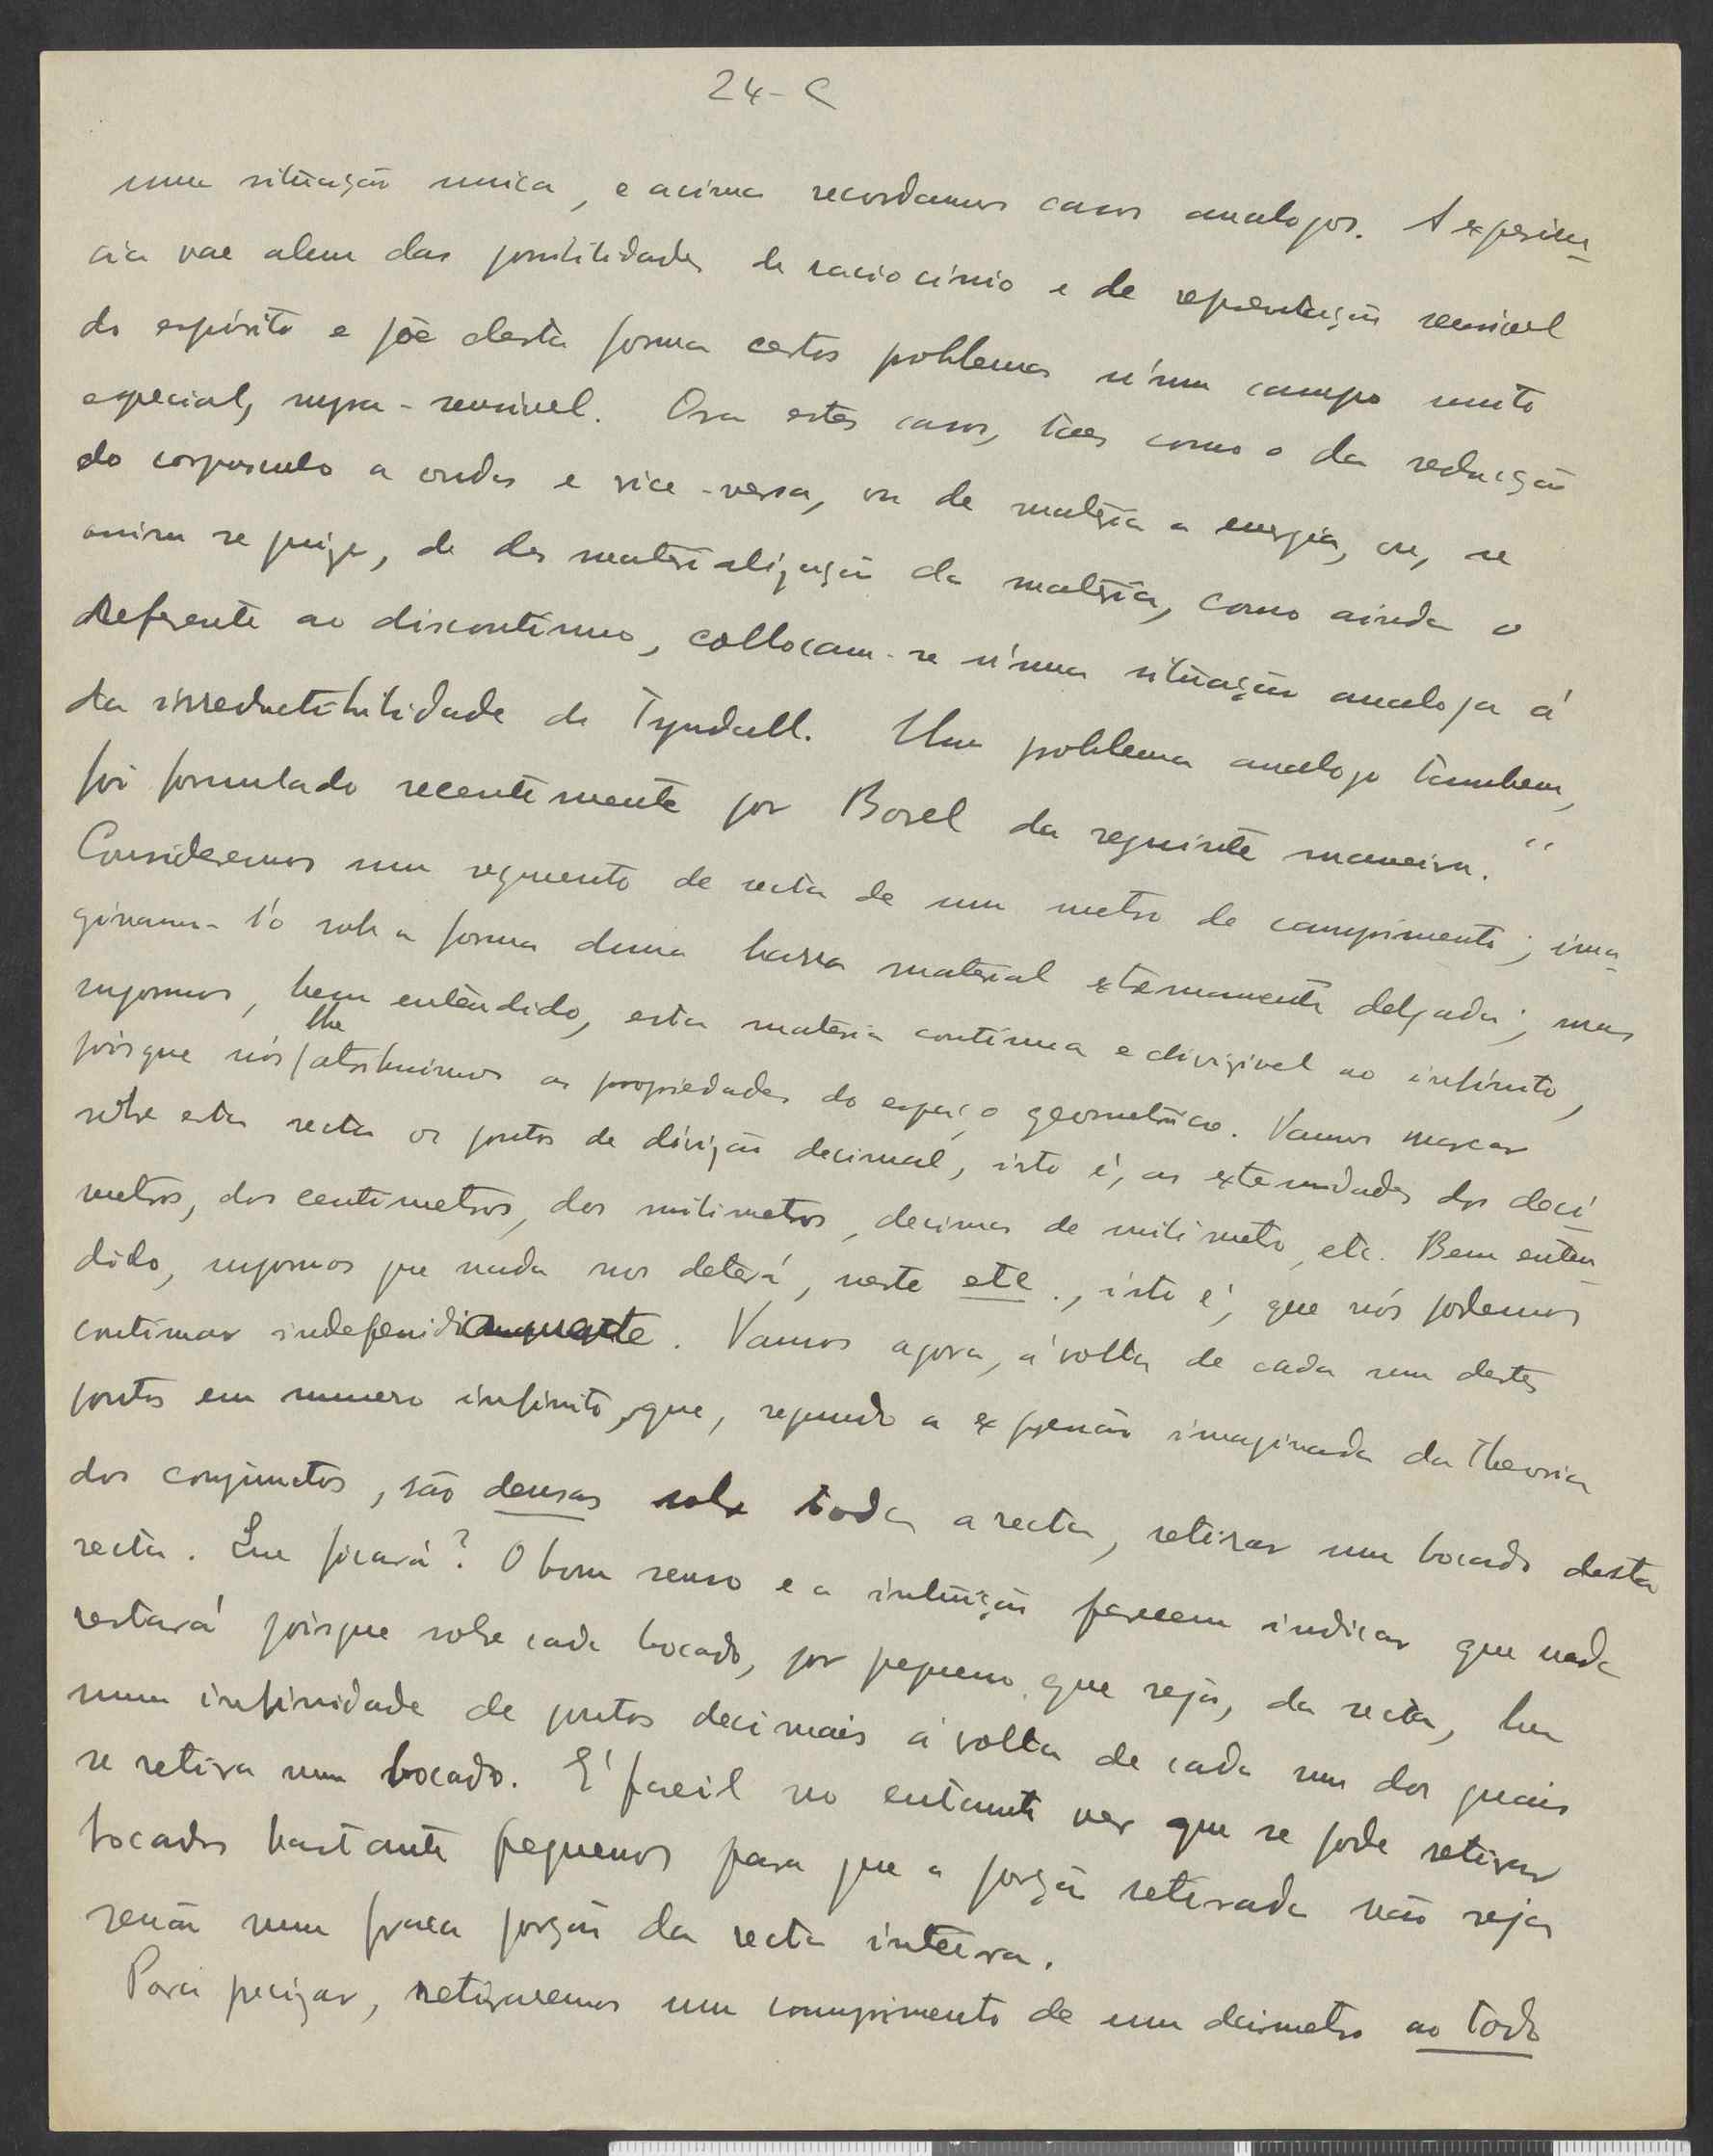 24-C
uma situação unica, e acima recordamos casos analogos. A experien-
cia vae alem das possibilidades de raciocinio e de representação sensivel
do espirito e põe desta forma certos problemas n'um campo muito
especial, supra-sensivel. Ora estes casos, taes como o da reducção
do corpusculo a ondas e vice-versa, ou de materia a energia, ou, se
assim se quizer, de desmaterialização da materia, como ainda o
referente ao discontinuo, collocam-se n'uma situação analoga á
da irreductibilidade de Tyndall. Um problema analogo tambem,
foi formulado recentemente por Borel da seguinte maneira. "
Consideremos um segmento de recta de um metro de comprimento; ima-
ginam-l'o sob a forma duma barra material extremamente delgada; mas
suponmos, bem entendido, esta materia continua e divizivel ao infinito,
poisque nós lhe atribuimos as propriedades do espaço geometrico. Vamos marcar
sobre esta recta os pontos de divizão decimal, isto é, as extremidades dos deci-
metros, dos centimetros, dos milimetros, decimas de milimetro, etc. Bem enten-
dido, supomos que nada nos deterá, neste etc., isto é, que nós podemos
continuar indefenidamente. Vamos agora, á volta de cada um destes
pontos em numero infinito, que, segundo a expressão imaginada da theoria
dos conjunctos, são densas sobre toda a recta, retirar um bocado desta
recta. Que ficará? O bom senso e a intuição parecem indicar que nada
restará poisque sobre cada bocado, por pequeno que seja, da recta, ha
uma infinidade de pontos decimais á volta de cada um dos quais
se retira um bocado. E' facil no entanto ver que se pode retirar
bocados bastante pequenos para que a porção retirada não seja
senão uma fraca porção da recta inteira.
Para precizar, retiraremos um comprimento de um decimetro ao todo